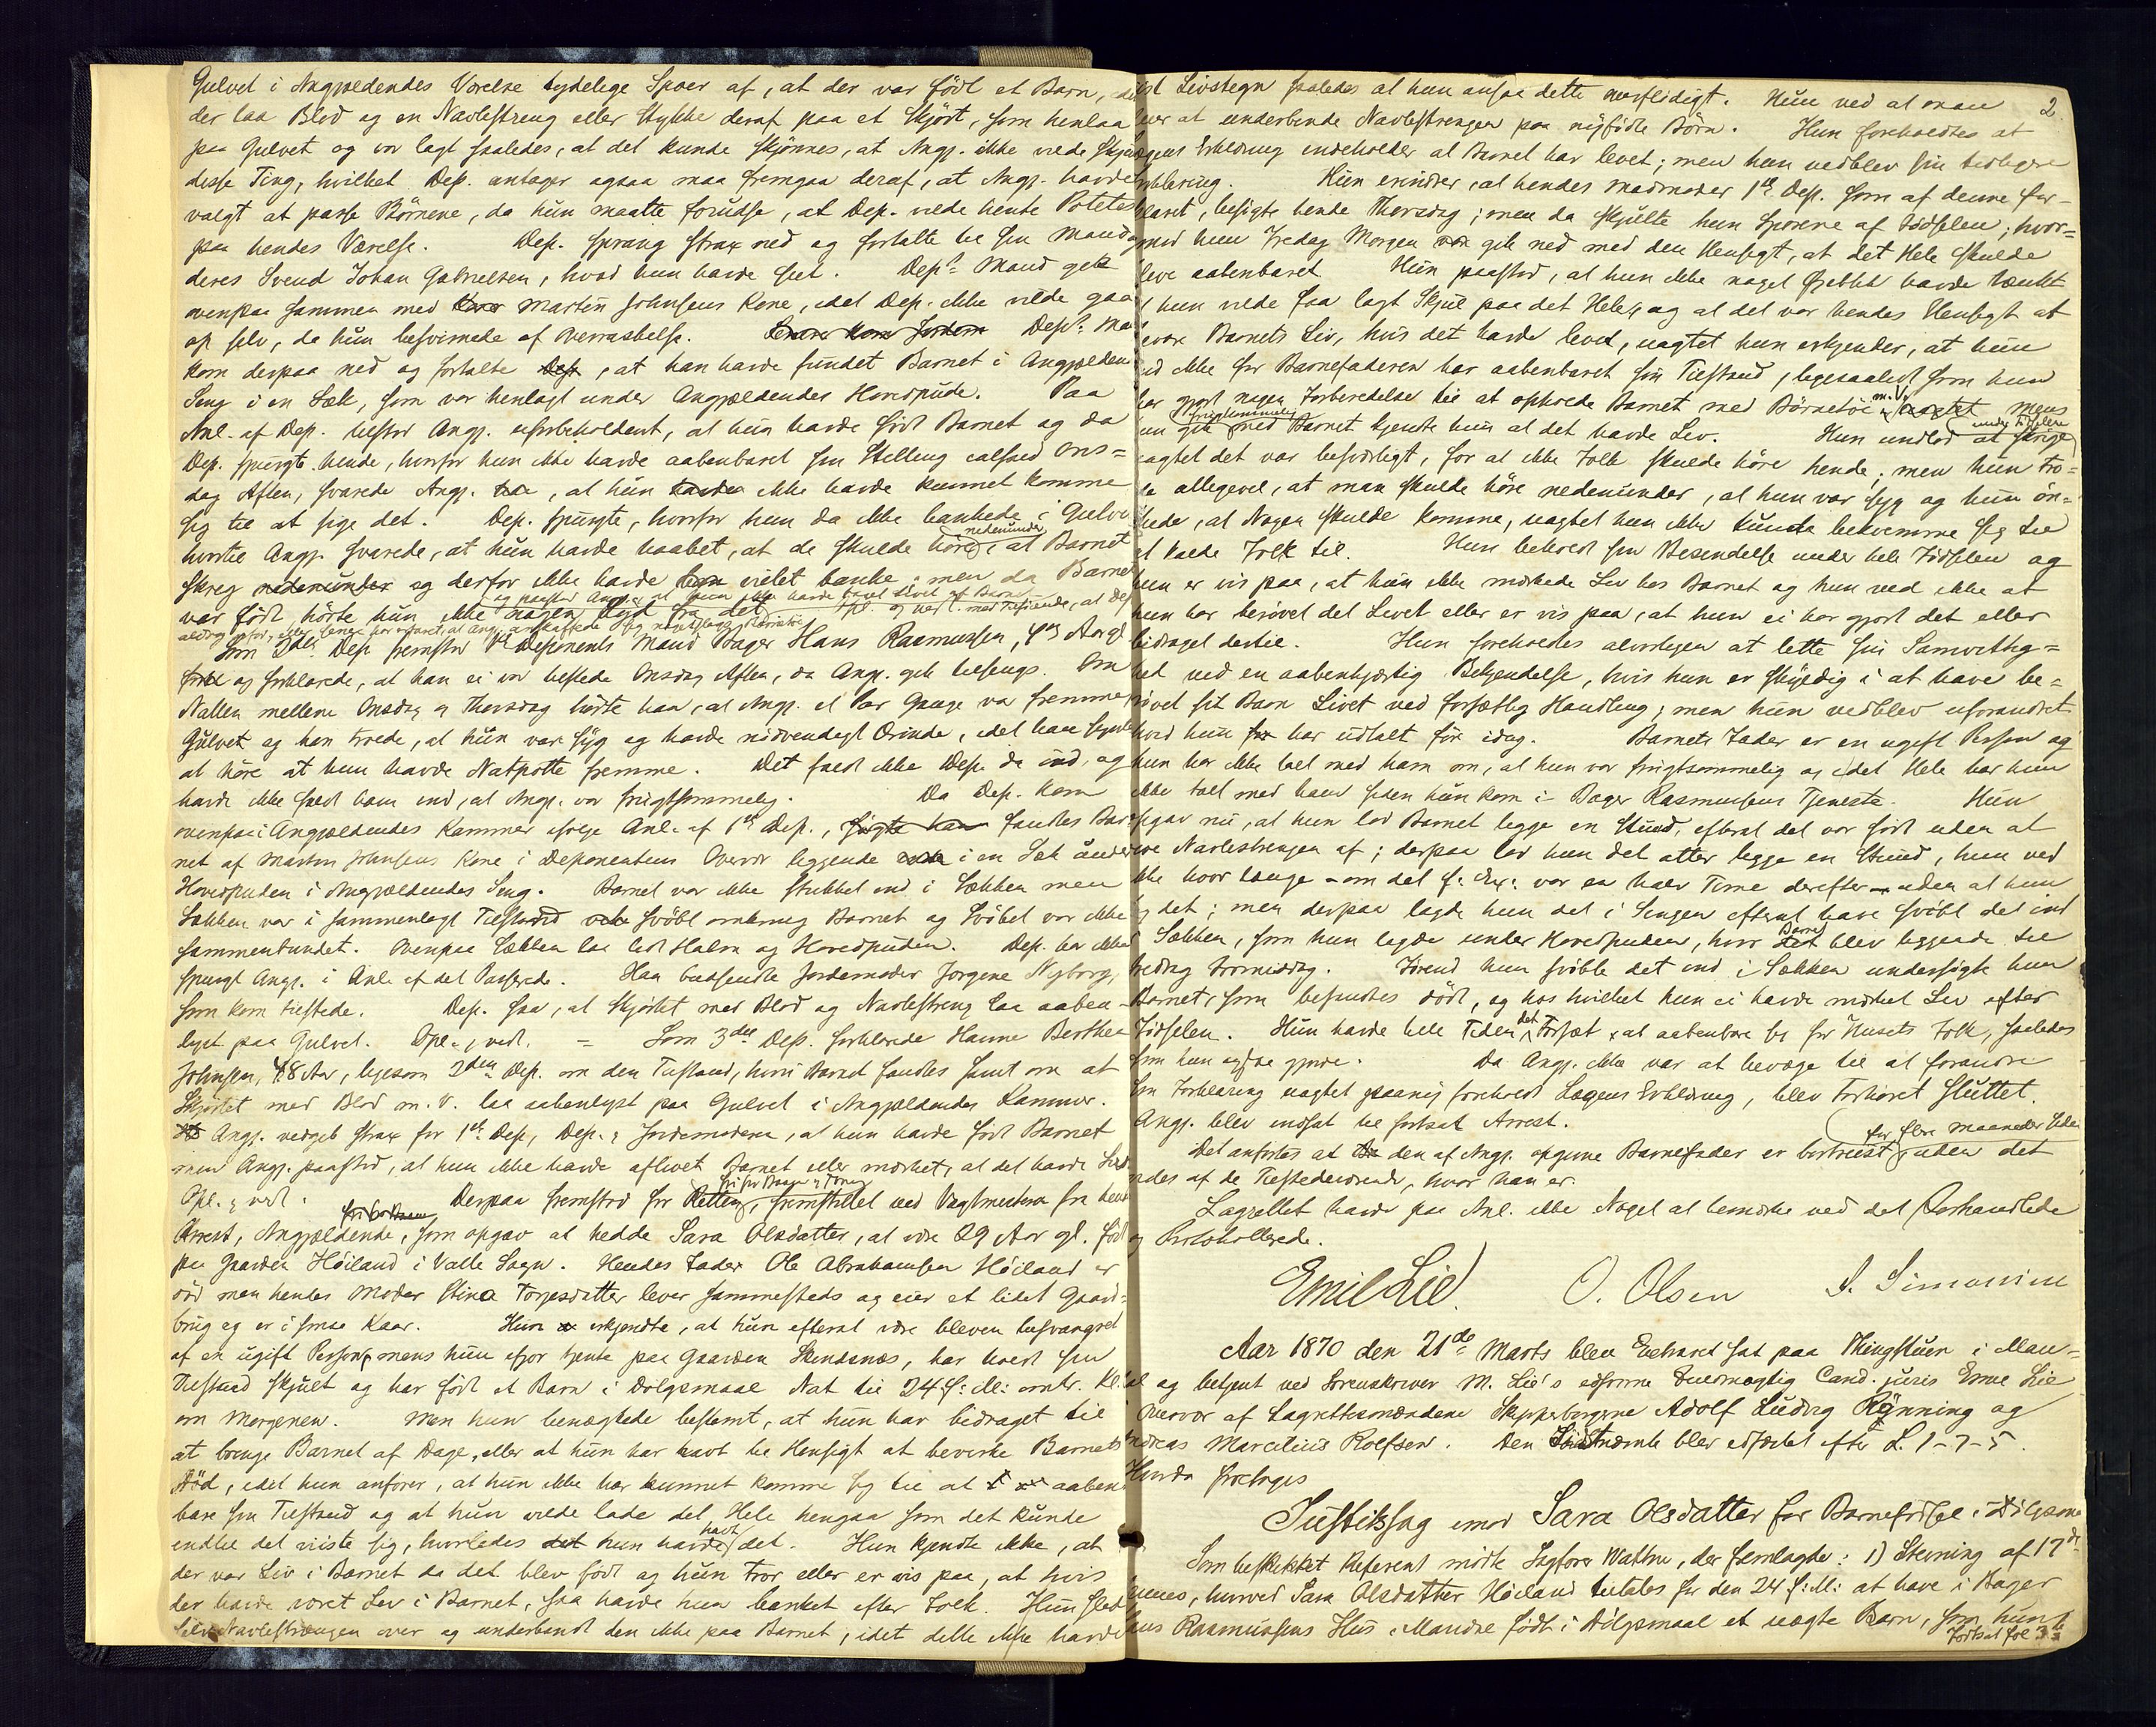 Gulvet i Angjældendes Værelse tydelige Spor af, at der var født et Barn,
der laa Blod og en Navlestreng eller Stykke deraf paa et Skjört, som henlaa
paa Gulvet og var lagt saaledes, at det kunde skjönnes, at Angj. ikke vilde skjule
disse Ting, hvilket Dep. antager ogsaa maa fremgaa deraf, at Angj. havde
valgt at passe Börnene, da hun maatte forudse, at Dep. vilde hente Poteter
paa hendes Værelse. Dep. sprang strax ned og fortalte til sin Mand og
deres Svend Johan Gabrielsen, hvad hun havde seet. Dep.s Mand gik
ovenpaa sammen med Martin Johnsens Kone, idet Dep. ikke vilde gaa
op selv, da hun besvimede af Overraskelse. Dep.s Ma
kom derpaa ned og fortalte Dep., at han havde fundet Barnet i Angjælden
Seng i en Sæk, som var henlagt under Angjældendes Hovedpude. Paa
Anl. af Dep. tilstod Angj. uforbeholdent, at hun havde födt Barnet og da
Dep. spurgte hende, hvorfor hun ikke havde aabenbaret sin Stilling ialfald Ons=
dag Aften, svarede Angj., at hun ikke havde kunnet komme
sig til at sige det. Dep. spurgte, hvorfor hun da ikke bankede i Gulvet
hvortil Angj. svarede, at hun havde haabet, at de skulde höre nedenunder, at Barnet
skreg og derfor ikke havde villet banke; men da Barnet
var födt, hörte hun ikke nogen Lyd fra det
Som 2den Dep. fremstod 1ste Deponents Mand Bager Hans Rasmussen, 43 Aar gl
og forklarede, at han ei var tilstede Onsdag Aften, da Angj. gik tilsengs. Om
Natten mellem Onsdag og Thorsdag hörte han, at Angj. et Par Gange var fremme
Gulvet og han troede, at hun var syg og havde nödvendigt Ærinde, idet han syntes
at höre at hun havde Natpotte fremme. Det faldt ikke Dep. da ind, og
havde ikke faldt ham ind, at Angj. var frugtsommelig. Da Dep. kom
ovenpaa i Angjældendes Kammer ifölge Anl. af 1ste Dep., fandtes Bar
net af Martin Johnsens Kone i Deponentens Overvær liggende i en Sæk under
Hovedpuden i Angjældendes Seng. Barnet var ikke stukket ind i Sækken men
Sækken var i sammenlagt Tilstand svöbt omkring Barnet og Svöbet var ikke
sammenbundet. Ovenpaa Sækken laa lidt Halm og Hovedpuden. Dep. har ikke
spurgt Angj. i Anl. af det Passerede. Han budsendte Jordemoder Jorgine Nyborg,
som kom tilstede. Dep. saa, at Skjörtet med Blod og Navlestreng laa aaben-
lyst paa Gulvet. Opl. & vedt. = Som 3die Dep. forklarede Hanne Berthea
Johnsen, 48 Aar, ligesom 2den Dep. om den Tilstand, hvori Barnet fandtes samt om at
Skjörtet med Blod m. v. laa aabenlyst paa Gulvet i Angjældendes Kammer.
Angj. vedgik strax for 1ste Dep., Dep. & Jordemoderen, at hun havde födt Barnet
men Angj. paastod, at hun ikke havde aflivet Barnet eller mærket, at det havde Liv
Opl. & vedt. Derpaa fremstod for Retten fri for Baand & Tvang, fremstillet ved Vagtmesteren fra
Arrest, Angjældende, som opgav at hedde Sara Olsdatter, at være 29 Aar gl. födt
paa Gaarden Höiland i Valle Sogn. Hendes Fader Ole Abrahamsen Höiland er
död men hendes Moder Stina Torjesdatter lever sammesteds og eier et lidet Gaard=
brug og er i smaa Kaar. Hun erkjendte, at hun efterat være bleven besvangret
af en ugift Person, mens hun ifjor tjente paa Gaarden Skinsnæs, har holdt sin
Tilstand skjult og har födt et Barn i Dölgsmaal Nat til 24 f: M: omtr. Kl.
om Morgenen. Men hun benægtede bestemt, at hun har bidraget til
at bringe Barnet af Dage, eller at hun har havt til Hensigt at bevirke Barnets
Död, idet hun anförer, at hun ikke har kunnet komme sig til at aaben
bare sin Tilstand og at hun vilde lade det Hele hengaa som det kunde
indtil det viiste sig, hvorledes hun havde havt det. Hun kjendte ikke, at
der var Liv i Barnet da det blev födt og hun tror eller er vis paa, at hvis
der havde været Liv i Barnet, saa havde hun banket efter Folk. Hun sled
selv Navlestrengen over og underbandt den ikke paa Barnet, idet dette ikke havde
2
Livstegn saaledes at hun ansaa dette overflödigt. Hun ved at man
at underbinde Navlestrengen paa nyfödte Börn. Hun foreholdtes at
Erklæring indeholder at Barnet har levet; men hun vedblev sin tidligere
Hun erindrer, at hendes Madmoder 1ste Dep. som af denne for-
klaret, besögte hende Thorsdag; men da skjulte hun Sporene af Födselen; hvor=
imod hun Fredag Morgen gik ned med den Hensigt, at det Hele skulde
blive aabenbaret. Hun paastod, at hun ikke noget Öieblik havde tænkt
hun vilde faa lagt Skjul paa det Hele, og at det var hendes Hensigt at
Barnets Liv, hvis det havde levet, uagtet hun erkjender, at hun
ikke for Barnefaderen har aabenbaret sin Tilstand, ligesaalidt som hun
har gjort nogen Forberedelse til at opklæde Barnet med Börnetöi m. v. Mens
hun gik frugtsommelig med Barnet kjendte hun at det havde Liv. Hun undlod under Födselen at skrige
uagtet det var besværligt, for at ikke Folk skulde höre hende; men hun tro=
de allegevel, at man skulde höre nedenunder, at hun var syg og hun ön=
skede, at Nogen skulde komme, uagtet hun ikke kunde bekvemme sig til
at kalde Folk til. Hun beholdt sin Besindelse under hele Födselen og
hun er vis paa, at hun ikke mærkede Liv hos Barnet og hun ved ikke at
hun har berövet det Livet eller er vis paa, at hun ei har gjort det eller
bidraget dertil. Hun foreholdtes alvorligen at lette sin Samvittig=
hed ved en aabenhjertig Bekjendelse, hvis hun er skyldig i at have be=
rövet sit Barn Livet ved forsætlig Handling; men hun vedblev uforandret
hvad hun har udtalt för idag. Barnets Fader er en ugift Person og
hun har ikke talt med ham om, at hun var frugtsommelig og i det Hele har hun
ikke talt med ham siden hun kom i Bager Rasmussens Tjeneste. Hun
opgav nu, at hun lod Barnet ligge en Stund, efterat det var födt uden at
rive Navlestrengen af; derpaa lod hun det atter ligge en Stund, hun ved
ikke hvor længe - om det f: Ex: var en halv Time derefter - uden at hun
det; men derpaa lagde hun det i Sengen efterat have svöbt det ind
i Sækken, som hun lagde under Hovedpuden, hvor Barnet blev liggende til
Fredag Formiddag. Förend hun svöbte det ind i Sækken undersögte hun
Barnet, som befandtes dödt, og hos hvilket hun ei havde mærket Liv efter
Födselen. Hun havde hele Tiden det Forsæt, at aabenbare sig for Husets Folk, saaledes
som hun ogsaa gjorde. Da Angj. ikke var at bevæge til at forandre
sin Forklaring uagtet paany foreholdt Lægens Erklæring, blev Forhöret sluttet.
Angj. blev indsat til fortsat Arrest.
Det anförtes at den af Angj. opgivne Barnefader er bortreist for flere Maaneder siden uden det
vides af de Tilstedeværende, hvor han er.
Lagrettet havde paa Anl. ikke Noget at bemærke ved det Forhandlede
og Protokollerede.
Emil Lie. O. Olsen S. Simonsen
Aar 1870 den 21de Marts blev Extraret sat paa Thingstuen i Man=
dal og betjent ved Sorenskriver M. Lie's edsvorne Fuldmægtig Cand. juris Emil Lie
i Overvær af Lagrettesmændene Skipperborgerne Adolf Ludvig Rynning og
Andreas Marcelius Rolfsen. Den Sidstnævnte blev edfæstet efter L. 1-7-5.
Hvorda foretoges
Justitssag imod Sara Olsdatter for Barnefödsel i Dölgsmaal
Som beskikket Referent mödte Sagförer Wattne, der fremlagde: 1) Stevning af 17de
hvorved Sara Olsdatter Höiland tiltales for den 24 f: M: at have i Bager
Hans Rasmussens Hus i Mandal födt i Dölgsmaal et uægte Barn, som hun
Fortsat fol 3